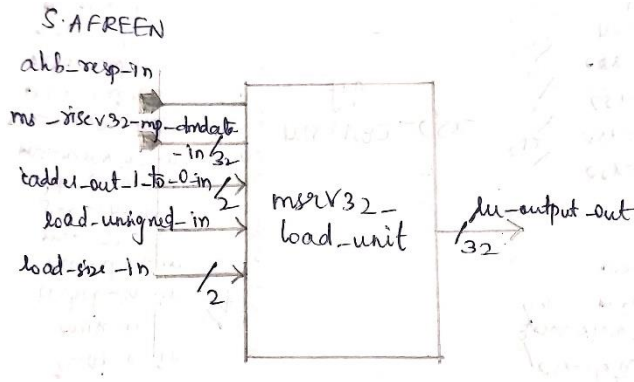 S.AFREEN
ahb_resp_in
ms_riscv32_mp_dmdata
_in 32
iadder_out_1_to_0_in 2
load_unsigned_in
load_size_in
2
msrv32_
load_unit
lu_output_out
32